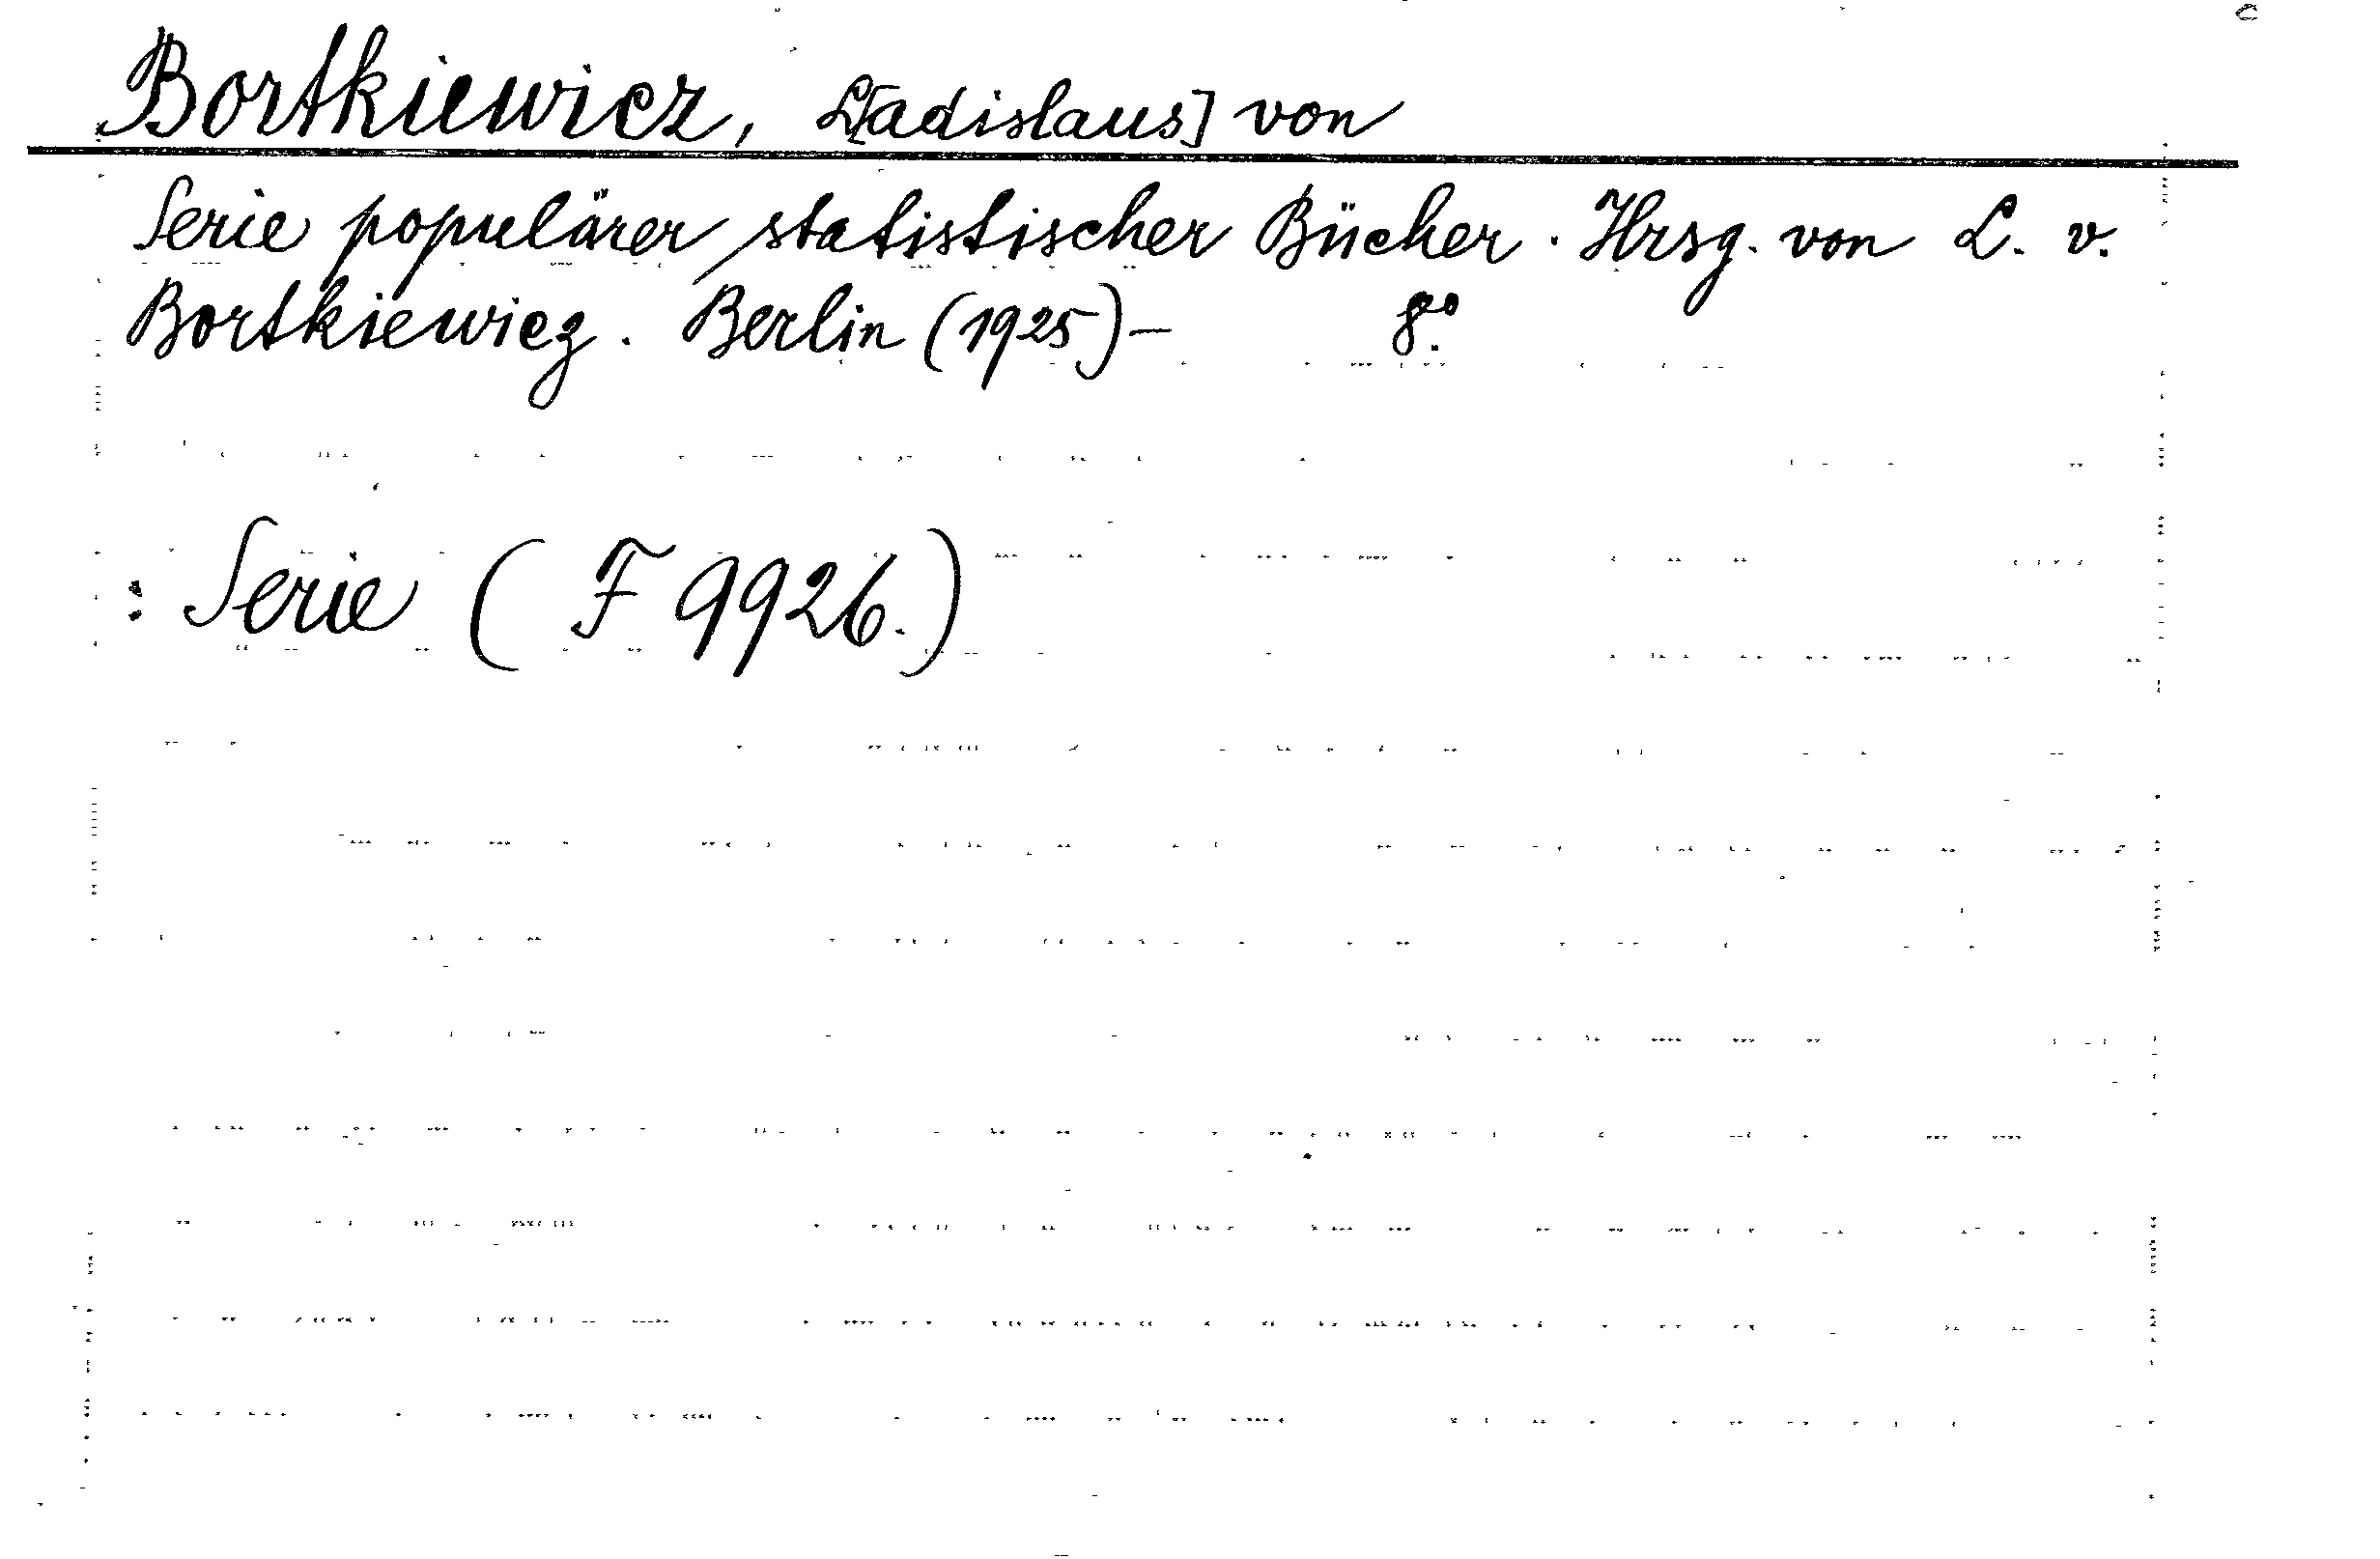 Bortkiewicz, L[adislaus] von
Serie populärer statistischer Bücher. Hrsg. von L. v.
Bortkiewicz. Berlin (1925)- 8°.
: Serie (F 9926.)